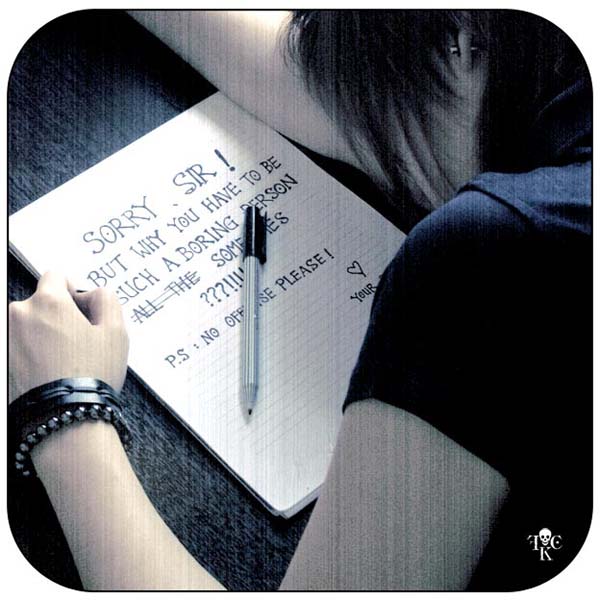 SORRY SIR!
BUT WHY YOU HAVE TO BE
SUCH A BORING PERSON
ALL THE
???!!!!
P.S : NO PLEASE!
♡
YOUR
TKC